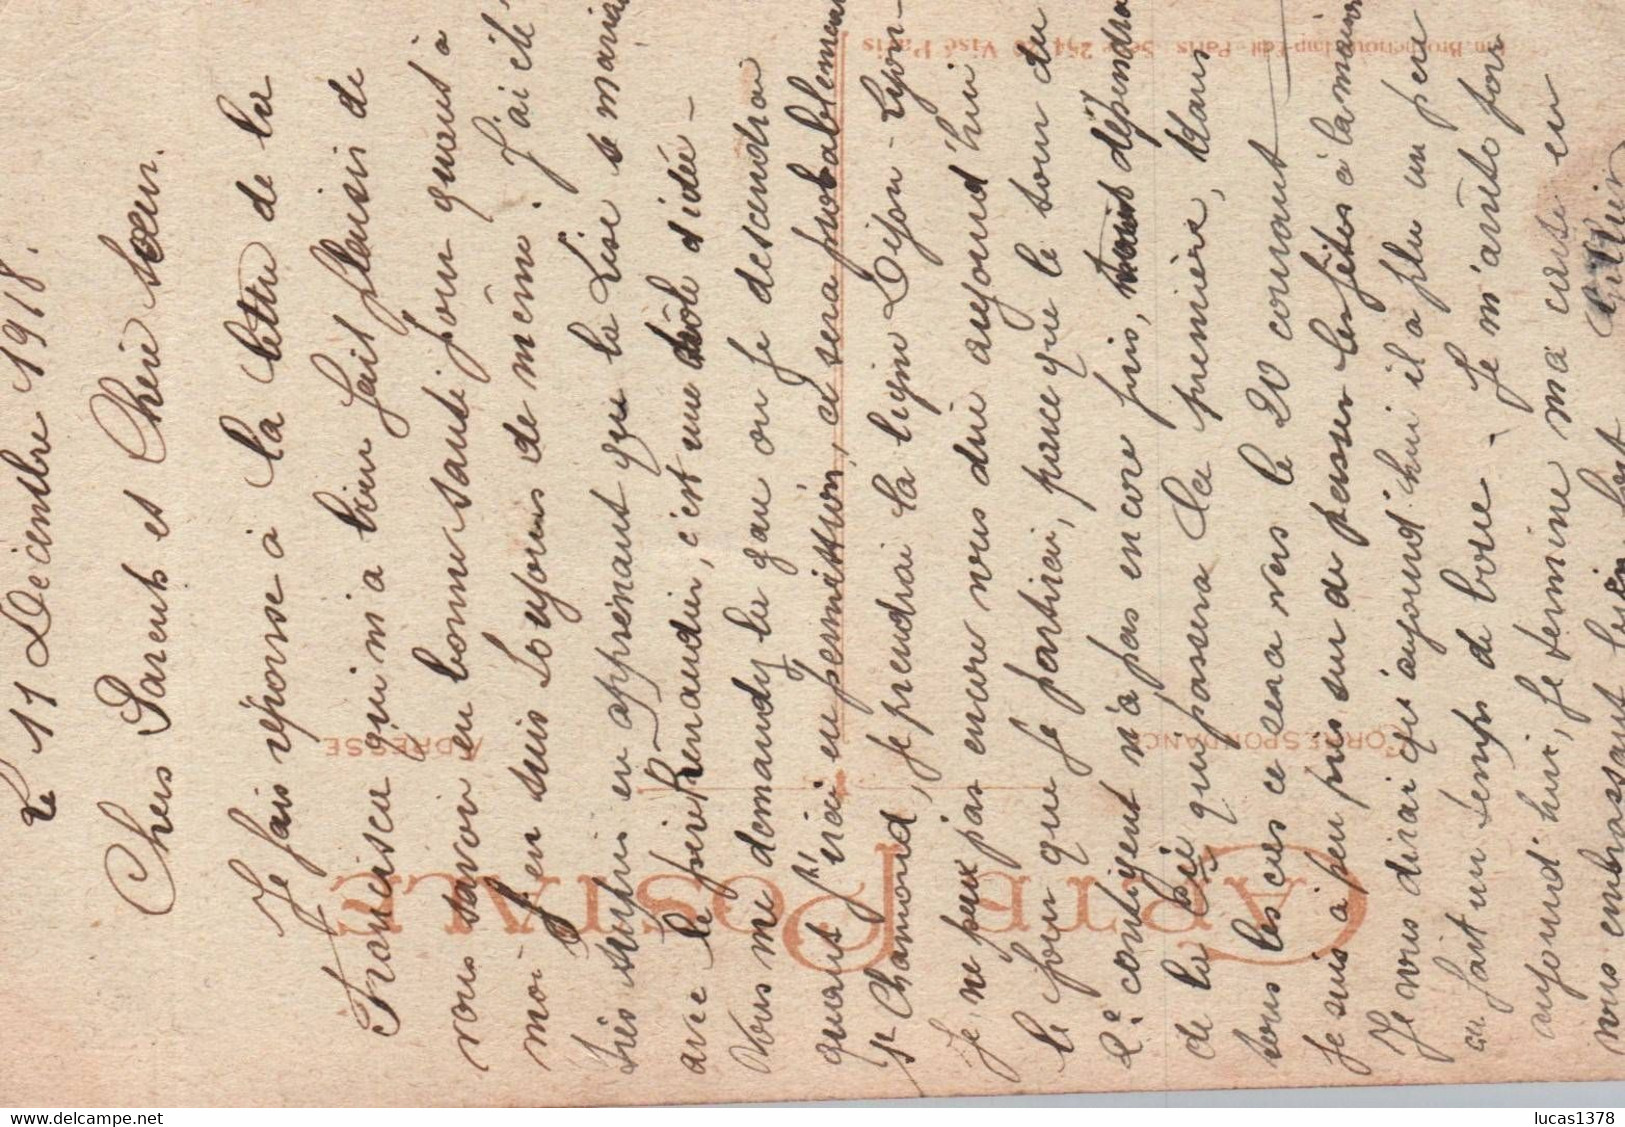 Le 11 Décembre 1918.
Chers Parents et Chère Sœur.
Je fais réponse à la lettre de la
Francisca qui m'a bien fait plaisir de
vous savoir en bonne santé pour quant à
moi j'en suis toujours de même. J'ai été
très surpris en apprenant que la Lise se maria
avec le père Renaudier, c'est une drôle d'idée –
Vous me demandez la gare ou je descendrai
quant j'irai en permission, ce sera probablement
St Chamond, je prendrai la ligne Dijon – Lyon –
Je ne peux pas encore vous dire aujourd'hui
le jour que je partirai, parce que le tour du
2e contigent n'a pas encore pris, dépendra
de la que passera la première, dans
tous les cas ce sera vers le 20 courant
Je suis à peu près sur de passer les fêtes à la maison
Je vous dirai qu'aujourd'hui il a plu un peu
ça fait un temps de boue. Je m'arrête pour
aujourd'hui, je termine ma causerie en
vous embrassant bien fort
CARTE POSTALE
CORRESPONDANCE
ADRESSE
Edit. Paris - Série 254 Visé Paris
lucas1378